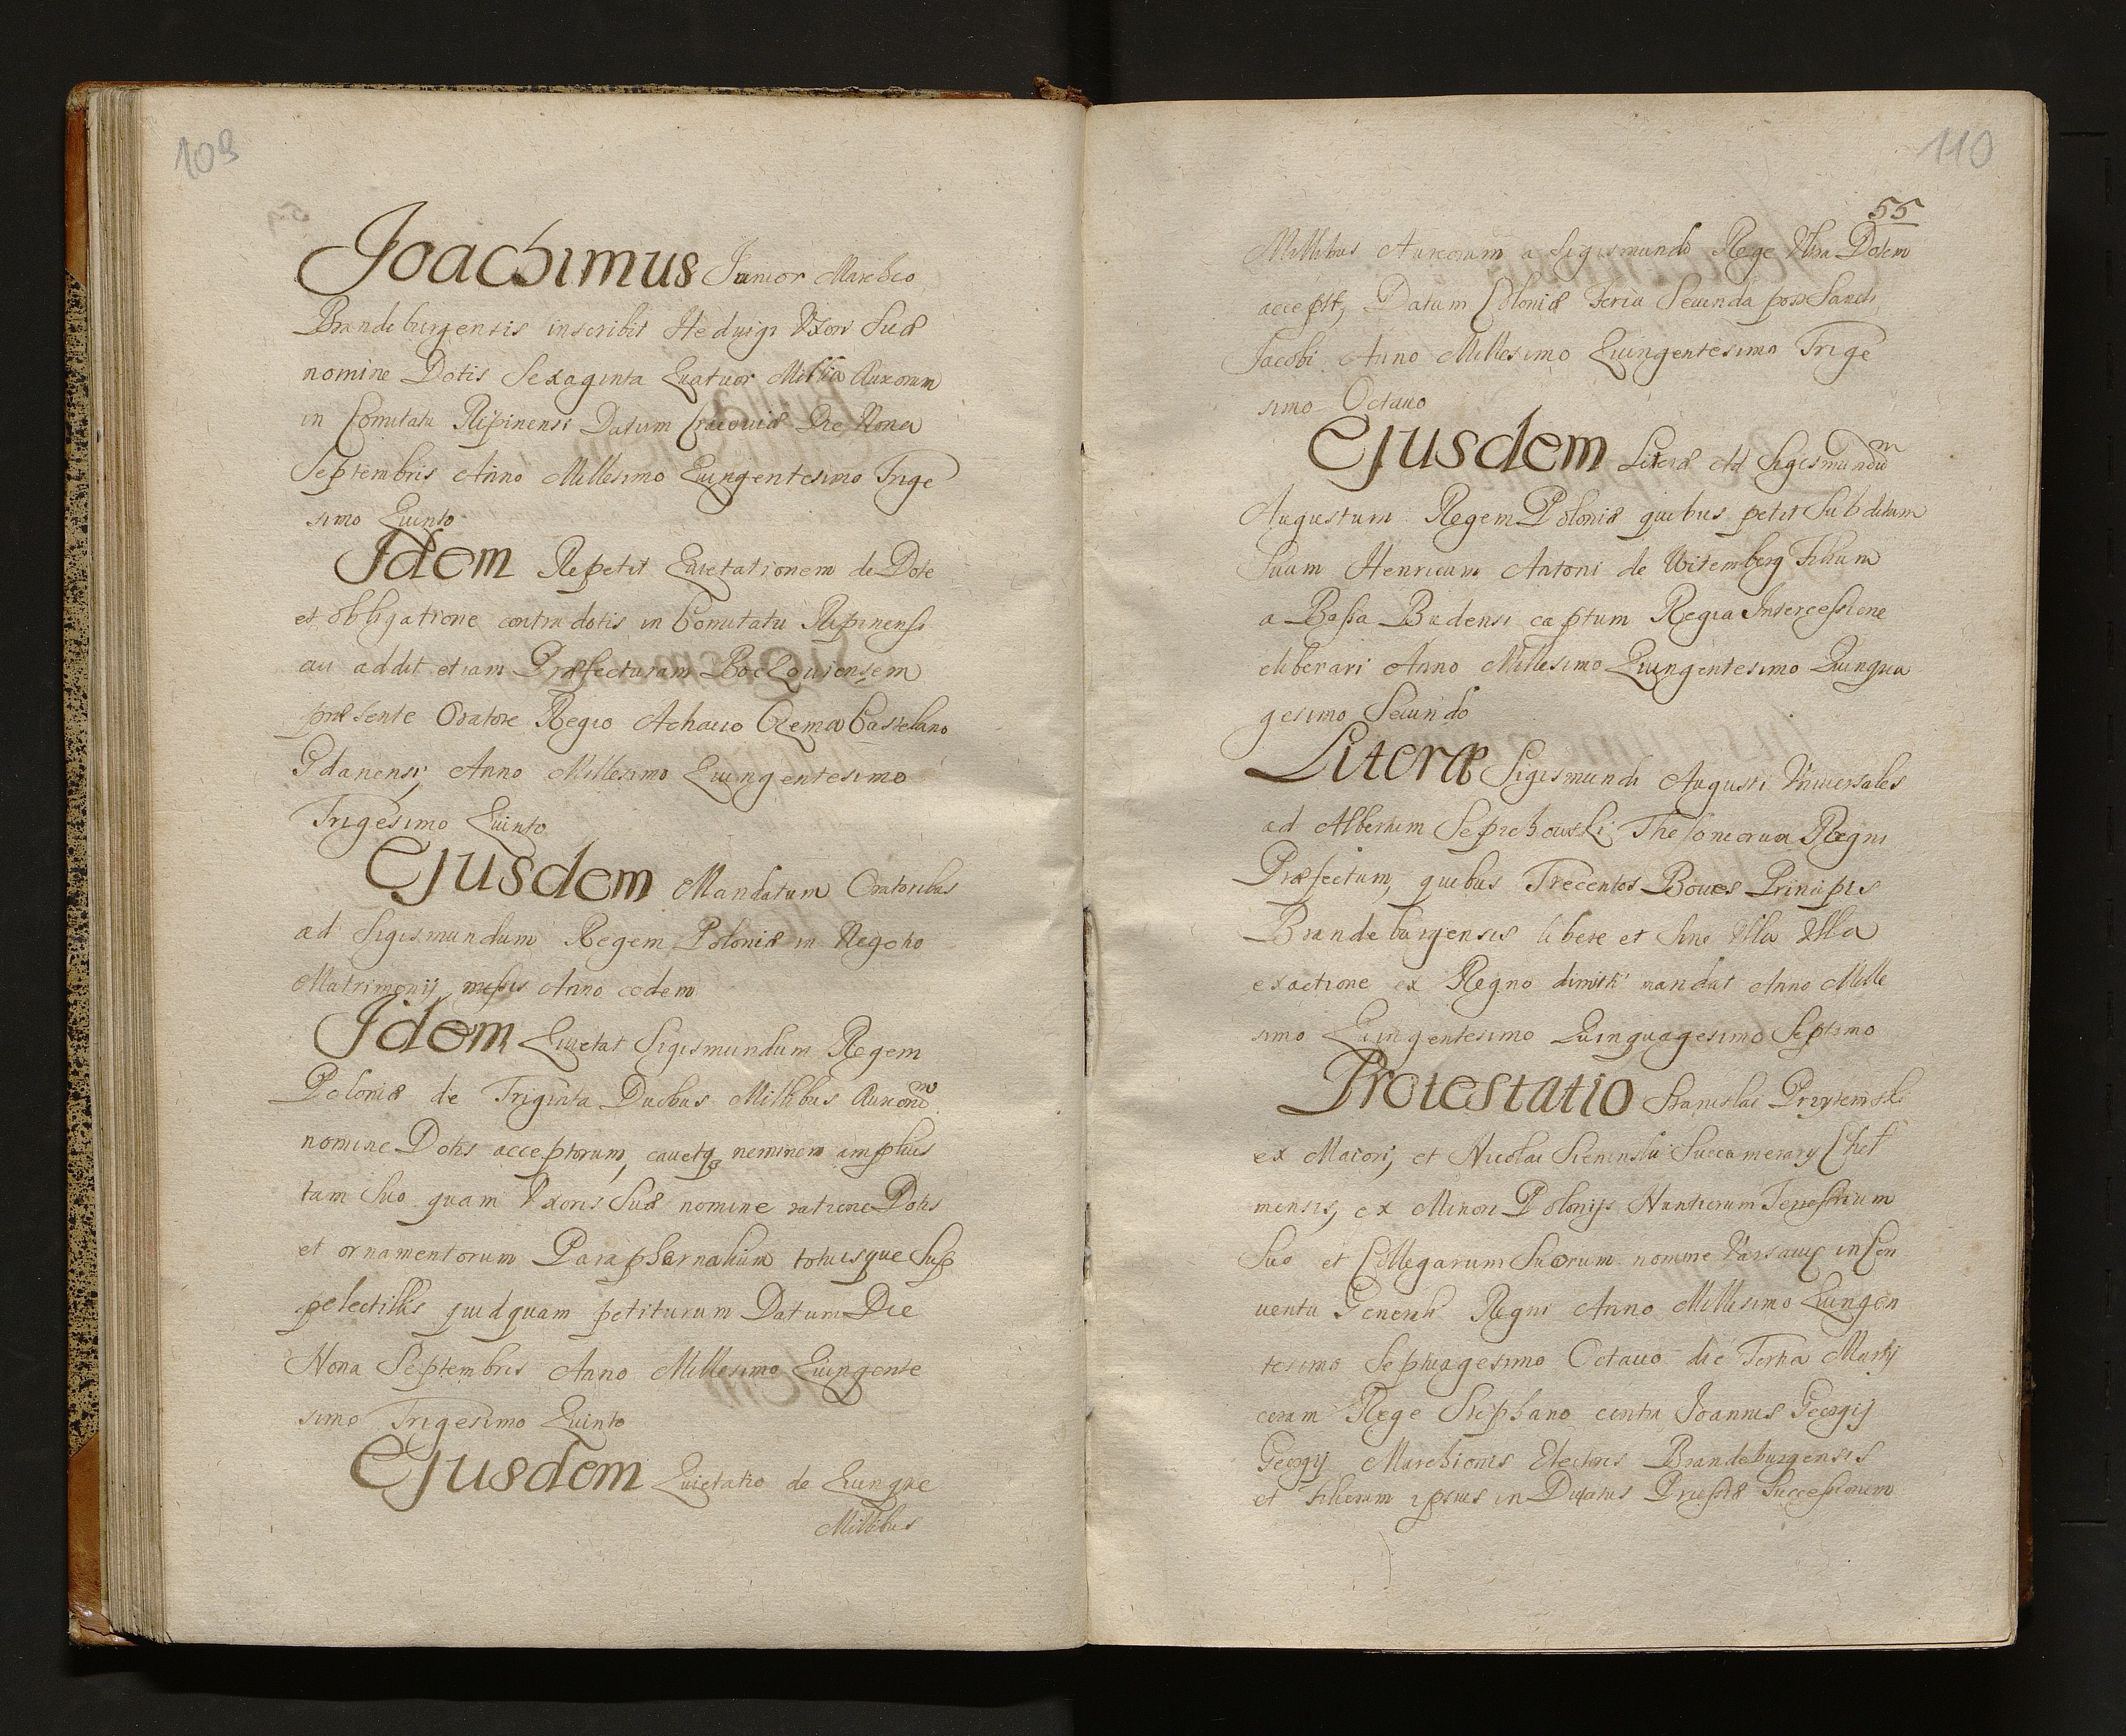 109
Joachimus Junior Marchio
Brandeburgensis inscribit Heduigi Uxori Suæ
nomine Dotis Sexaginta Quatuor Millia Aureorum
in Comitatu Ripinensi Datum Cracouiæ Die Nona
Septembris Anno Millesimo Quingentesimo Trige
simo Quinto
Idem Repetit Quietationem de Dote
et obligatione contradotis in Comitatu Ripinensi
au addit etiam Præfecturam Boetzouiensem
præsente Oratore Regio Achauo Czema Castelano
Gdanensi, Anno Millesimo Quingentesimo
Trigesimo Quinto
Ejusdem Mandatum Oratoribus
ad Sigismundum Regem Poloniæ in Negotio
Matrimonij missis Anno eodem
Idem Quietat Sigismundum Regem
Poloniæ de Triginta Duobus Millibus Aureorũm
nomine Dotis acceptorum, cauetq3 neminem amplius
tam Suo quam Uxoris Suæ nomine ratione Dotis
et ornamentorum Parapharnalium totiusque Sup
pelectilis quidquam petiturum Datum Die
Nona Septembris Anno Millesimo Quingente
simo Trigesimo Quinto
Ejusdem Quietatio de Quinque
Millibus
110
55
Millibus Aureorum a Sigismundo Rege Ultra Dotem
accepit, Datum Coloniæ Feria Secunda post Sancti
Jacobi Anno Millesimo Quingentesimo Trige
simo Octauo
Ejusdem Literæ Ad Sigismundũm
Augustum Regem Poloniæ quibus petit Subditum
Suum Henricum Antoni de Witemberg Filium
a Bassa Budensi captum Regia Intercessione
eliberari Anno Millesimo Quingentesimo Quinqua
gesimo Secundo
Literæ Sigismundi Augusti Uniuersales
ad Albertum Sepichowski Theloneorum Regni
Præfectum, quibus Trecentos Boues Principis
Brandeburgensis libere et Sine Ulla Ulla
exactione ex Regno dimitti mandat Anno Mille
simo Quingentesimo Quinquagesimo Septimo
Protestatio Stanislai Przyiemski
ex Maiori, et Nicolai Sieninski Succamerary Chel
mensis, ex Minori Polonijs Nuntiorum Terrestrium
Suo et Collegarum Suorum nomine Varsauiæ in Con
uentu Generali Regni Anno Millesimo Quingen
tesimo Septuagesimo Octauo die Tertia Martij
coram Rege Stephano contra Joannis Georgij
Georgij Marchionis Electoris Brandeburgensis
et filiorum ipsius in Ducatus Prussiæ Successionem